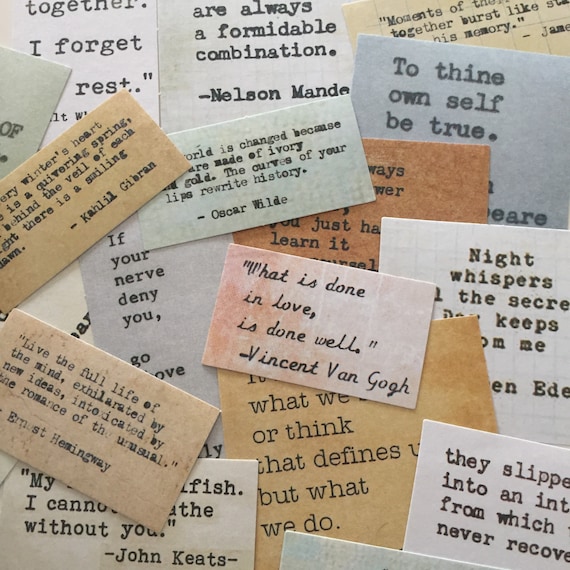 together.
I forget
rest.."
are always
a formidable
combination.
-Nelson Mande
"Moments of the
together burst like sta
his memory."
To thine
own self
be true.
OF
winter's heart
is a quivering spring,
behind the veil of each
there is a smiling
- Kahlil Gibran
world is changed because
are made of ivory
gold. The curves of your
lips rewrite history.
- Oscar Wilde
you just ha
learn it
If
your
nerve
deny
you,
go
"What is done
in love,
is done well."
-Vincent Van Gogh
Night
whispers
the secre
keeps
me
"Live the full life of
the mind, exhilarated by
new ideas, intoxicated by
the romance of the unusual."
- Ernest Hemingway
what we
or think
that defines u
but what
we do.
"My
I cannot
without you."
-John Keats-
they slippe
into an int
from which t
never recove